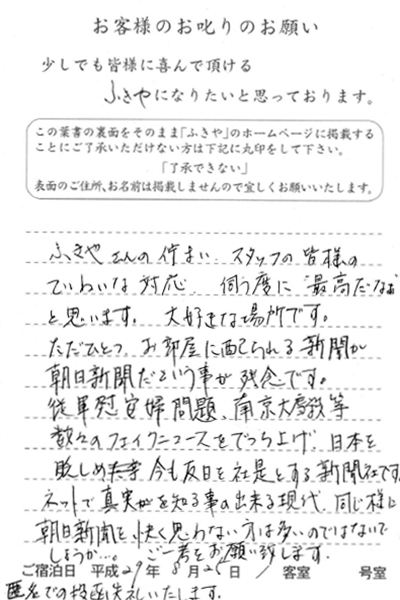 お客様のお叱りのお願い
少しでも皆様に喜んで頂ける
ふきやになりたいと思っております。
この葉書の裏面をそのまま「ふきや」のホームページに掲載する
ことにご了承いただけない方は下記に丸印をして下さい。
「了承できない」
表面のご住所、お名前は掲載しませんので宜しくお願いいたします。
ふきやさんの佇まい、スタッフの皆様の
ていねいな対応、伺う度に「最高だなぁ」
と思います。大好きな場所です。
ただひとつ、お部屋に配られる新聞が
朝日新聞だという事が残念です。
従軍慰安婦問題、南京大虐殺等
数々のフェイクニュースをでっち上げ、日本を
貶しめ 今も反日を社是とする新聞社です。
ネットで真実を知る事の出来る現代、同じ様に
朝日新聞を快く思わない方は多いのではないで
しょうか…。ご一考をお願い致します。
ご宿泊日 平成29年8月25日 客室 号室
匿名での投函失礼いたします。